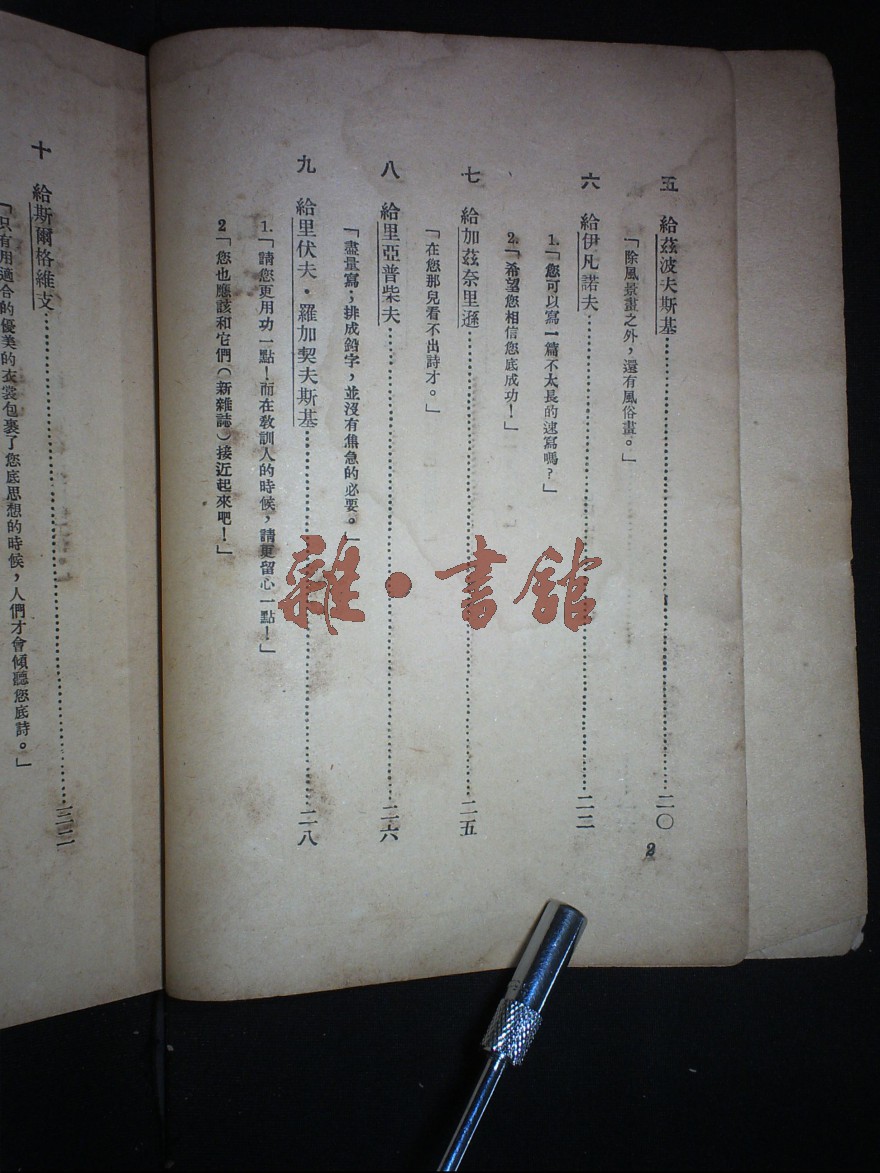 五　給茲波夫斯基……二〇
「除風景畫之外，還有風俗畫。」
六　給伊凡諾夫……二二
1.「您可以寫一篇不太長的速寫嗎？」
2.「希望您相信您底成功！」
七　給加茲奈里遜……二五
「在您那兒看不出詩才。」
八　給里亞普柴夫……二六
「盡量寫；排成鉛字，並沒有焦急的必要。」
九　給里伏夫・羅加契夫斯基……二八
1.「請您更用功一點！而在教訓人的時候，請更留心一點！」
2「您也應該和它們（新雜誌）接近起來吧！」
2
十　給斯爾格維支……三二
「只有用適合的優美的衣裳包裹了您底思想的時候，人們才會傾聽您底詩。」
雜・書館